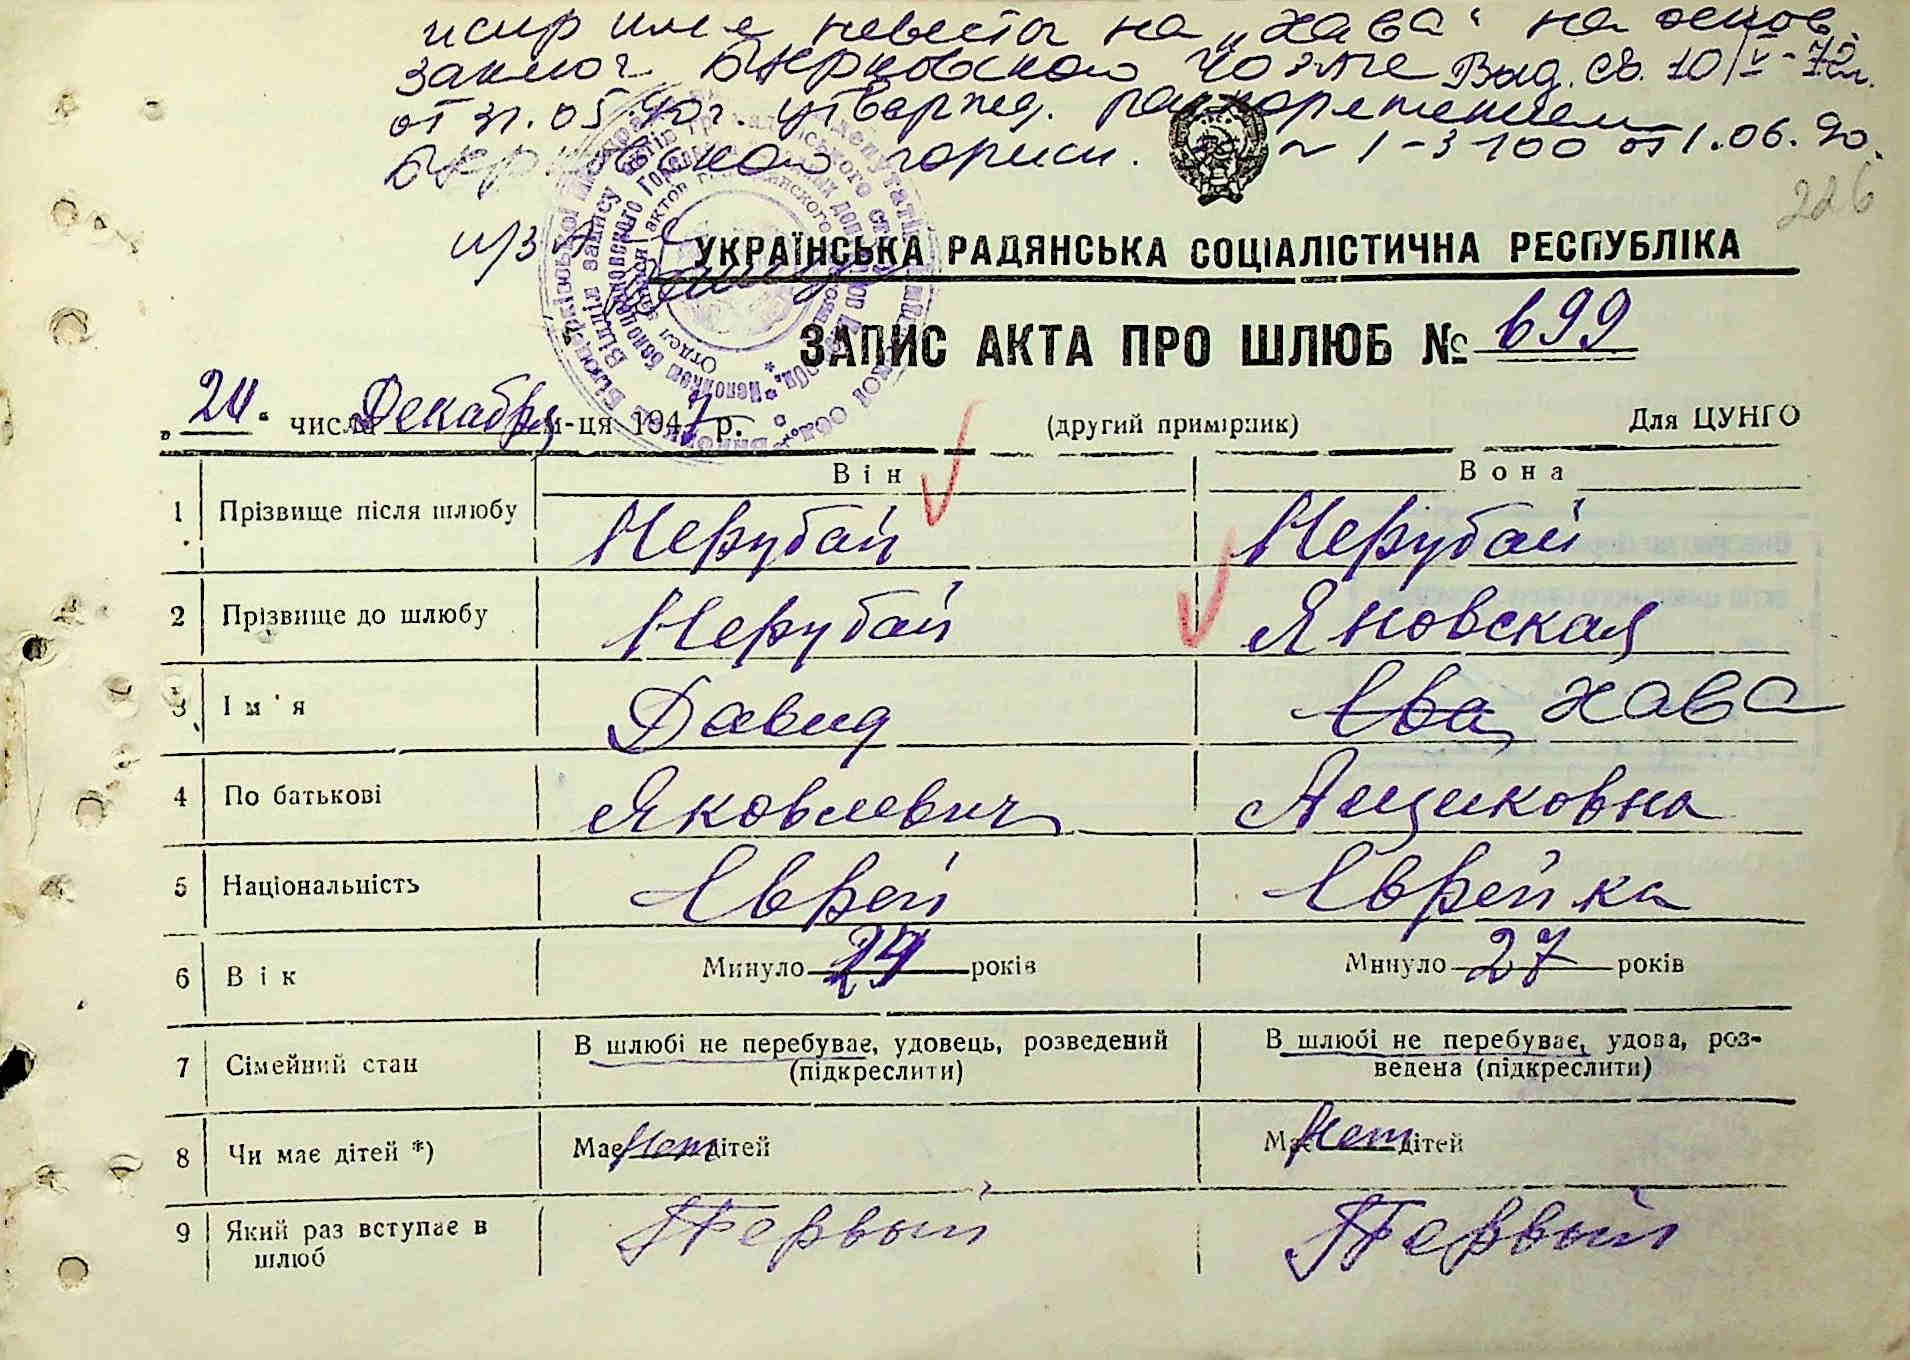 испр имя невесты на „Хава“ на основ.
заключ. Бцерковского ЧОЗАГС Выд. св. 10/V-72г.
от 31.05.90г. утвержд. распоряжением
Бцерковского горисп. № 1-3-100 от 1.06.90.
226
УКРАЇНСЬКА РАДЯНСЬКА СОЦІАЛІСТИЧНА РЕСПУБЛІКА
ЗАПИС АКТА ПРО ШЛЮБ № 699
„24“ числа Декабря м-ця 1947 р. (другий примірник) Для ЦУНГО
Він Вона
1 Прізвище після шлюбу Нерубай Нерубай
2 Прізвище до шлюбу Нерубай Яновская
3 Ім'я Давид Ева Хава
4 По батькові Яковлевич Айзиковна
5 Національність Еврей Еврейка
6 Вік Минуло 29 років Минуло 27 років
7 Сімейний стан В шлюбі не перебуває, удовець, розведений (підкреслити) В шлюбі не перебуває, удова, роз-
ведена (підкреслити)
8 Чи має дітей *) Має Нет дітей Має Нет дітей
9 Який раз вступає в Первый Первый
шлюб